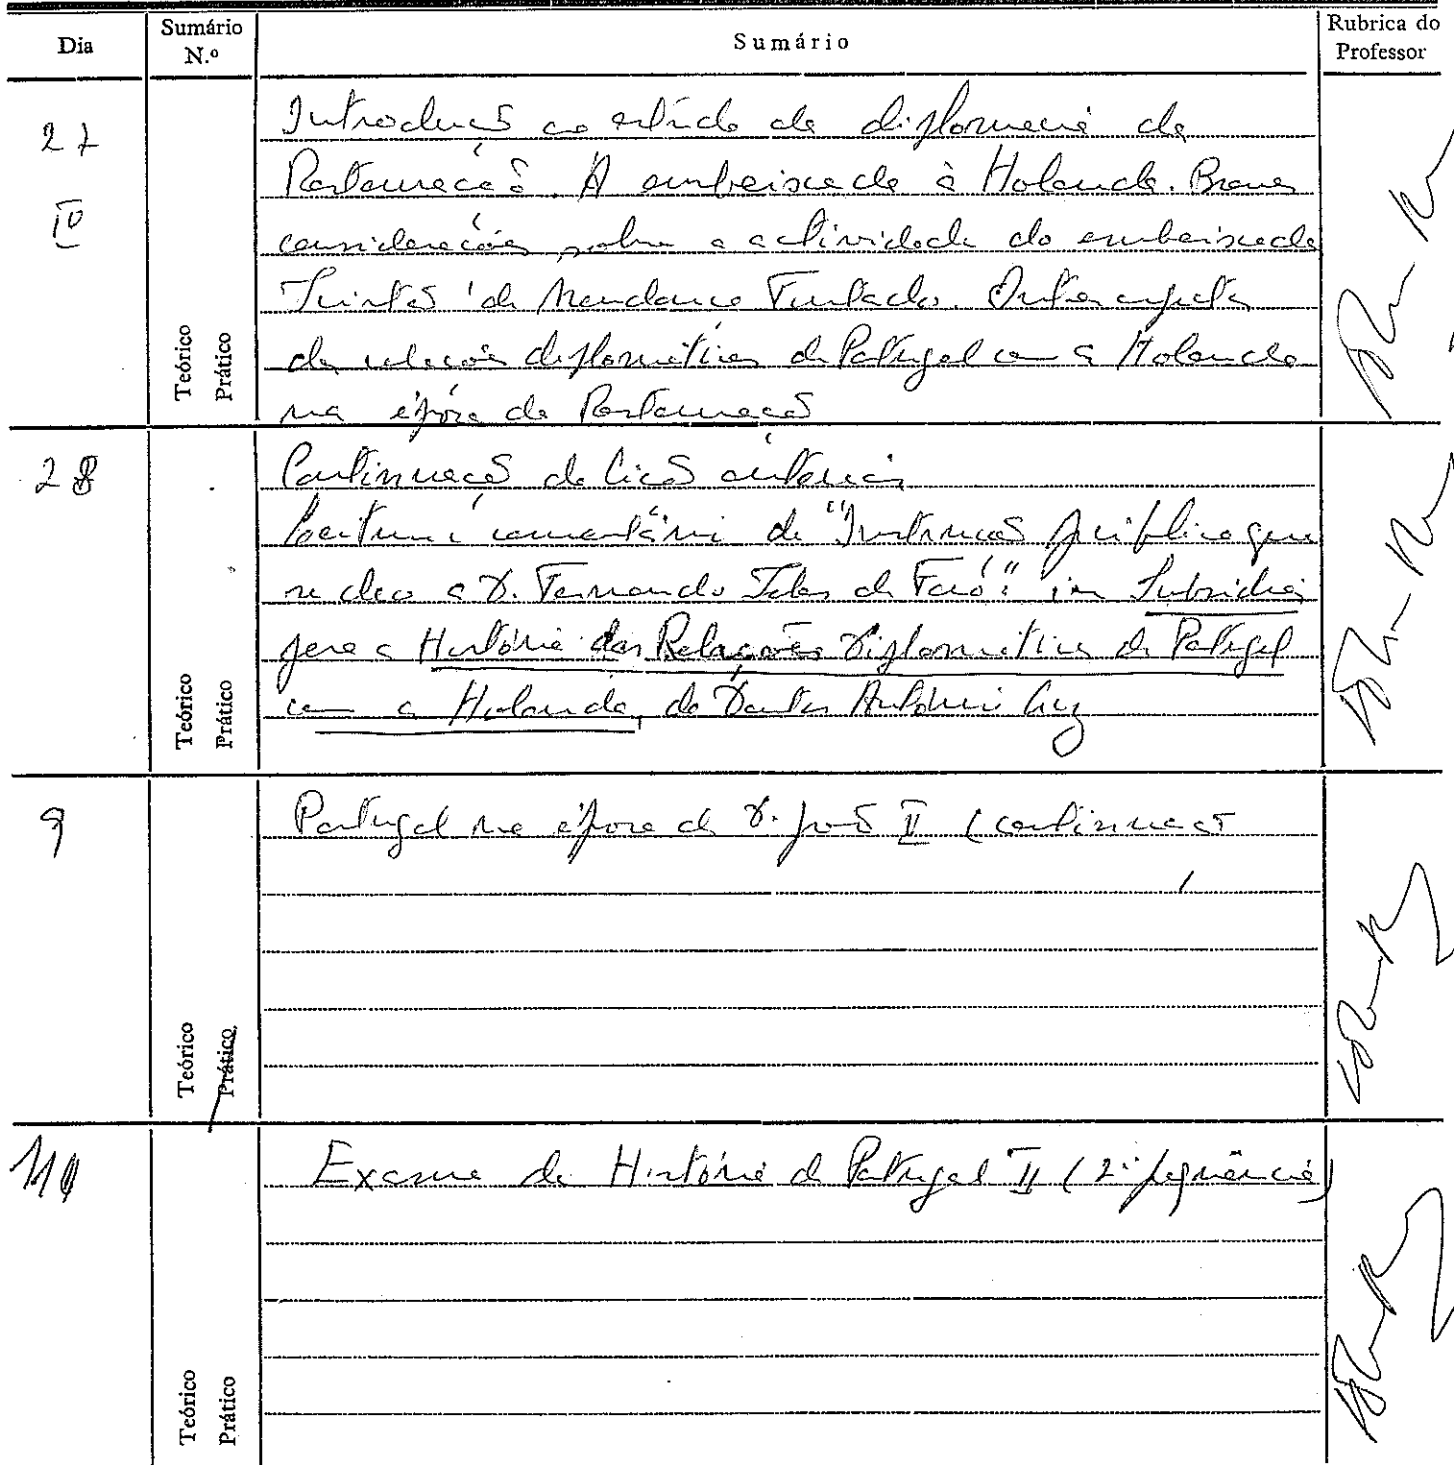 Dia
Sumário N.º
Sumário
Rubrica do Professor
27
IV
Introdução ao estudo da diplomacia da
Restauração. A embaixada à Holanda. Breves
considerações sobre a actividade do embaixador
Tristão de Mendonça Furtado. Outros aspectos
das relações diplomáticas de Portugal com a Holanda
na época da Restauração
Teórico
Prático
28
Continuação da lição anterior
Leitura e comentário da "Instrucção que
se deo a D. Fernando Teles de Faro" in Subsídios
para a História das Relações Diplomáticas de Portugal
com a Holanda, do Doutor António Cruz
Teórico
Prático
9
Portugal na época de D. João II (continuação
Teórico
Prático
Exame de História de Portugal II (2ª frequência)
Teórico
Prático